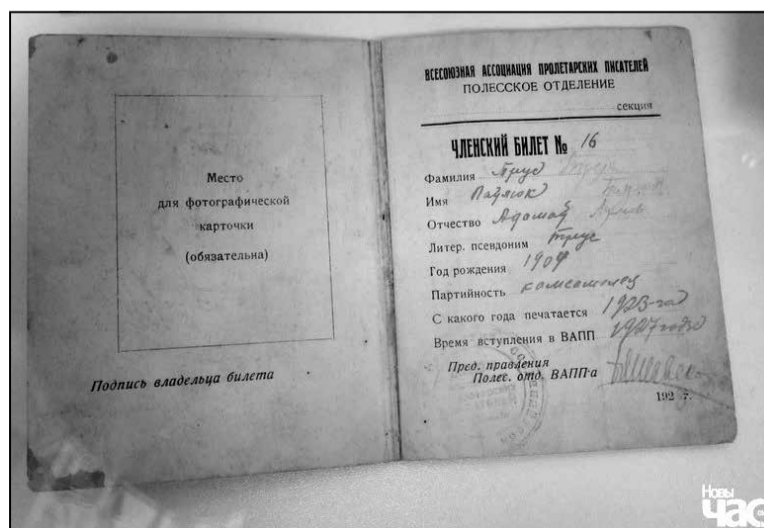 Место
для фотографической
карточки
(обязательна)
Подпись владельца билета
ВСЕСОЮЗНАЯ АССОЦИАЦИЯ ПРОЛЕТАРСКИХ ПИСАТЕЛЕЙ
ПОЛЕССКОЕ ОТДЕЛЕНИЕ
секция
ЧЛЕНСКИЙ БИЛЕТ № 16
Фамилия Трус
Имя Паўлюк
Отчество Адамаў
Литер. псевдоним Трус
Год рождения 1904
Партийность комсомолец
С какого года печатается 1923-год
Время вступления в ВАПП 1927 годз
Пред. правления
Полес. отд. ВАПП-а
192 г.
Новы
Час